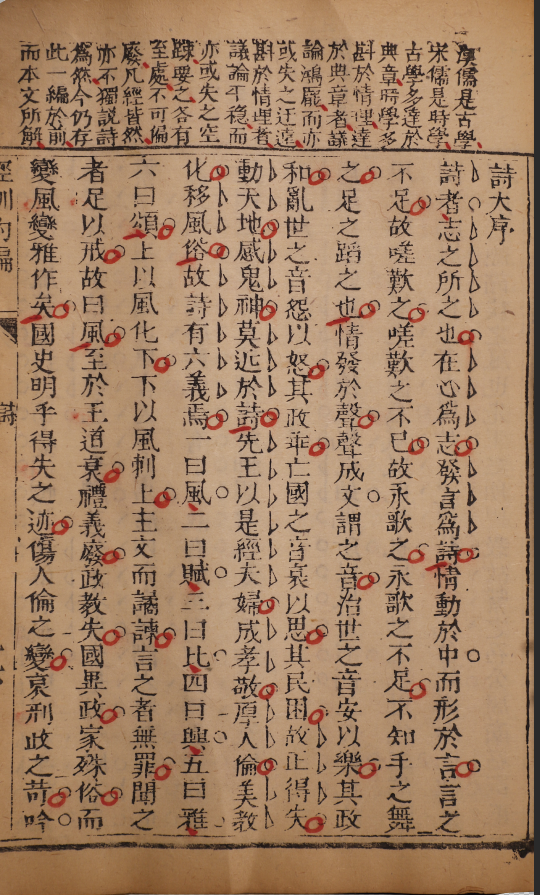 漢儒是古學
宋儒是時學
古學多達於
典章時學多
斟於情理達
於典章者議
論鴻麗而亦
或失之迂遠
斟於情理者
議論平穩而
亦或失之空
踈要之各有
至處不可偏
廢凡經皆然
亦不獨説詩
為然今仍存
此一編於前
而本文所解
詩大序
詩者志之所之也在心為志發言為詩情動於中而形於言言之
不足故嗟歎之嗟歎之不已故永歌之永歌之不足不知手之舞
之足之蹈之也情發於聲聲成文謂之音治世之音安以樂其政
和亂世之音怨以怒其政乖亡國之音哀以思其民困故正得失
動天地感鬼神莫近於詩先王以是經夫婦成孝敬厚人倫美教
化移風俗故詩有六義焉一曰風二曰賦三曰比四曰興五曰雅
六曰頌上以風化下下以風刺上主文而譎諫言之者無罪聞之
者足以戒故曰風至於王道衰禮義廢政教失國異政家殊俗而
變風變雅作矣國史明乎得失之迹傷人倫之變哀刑政之苛吟
詩